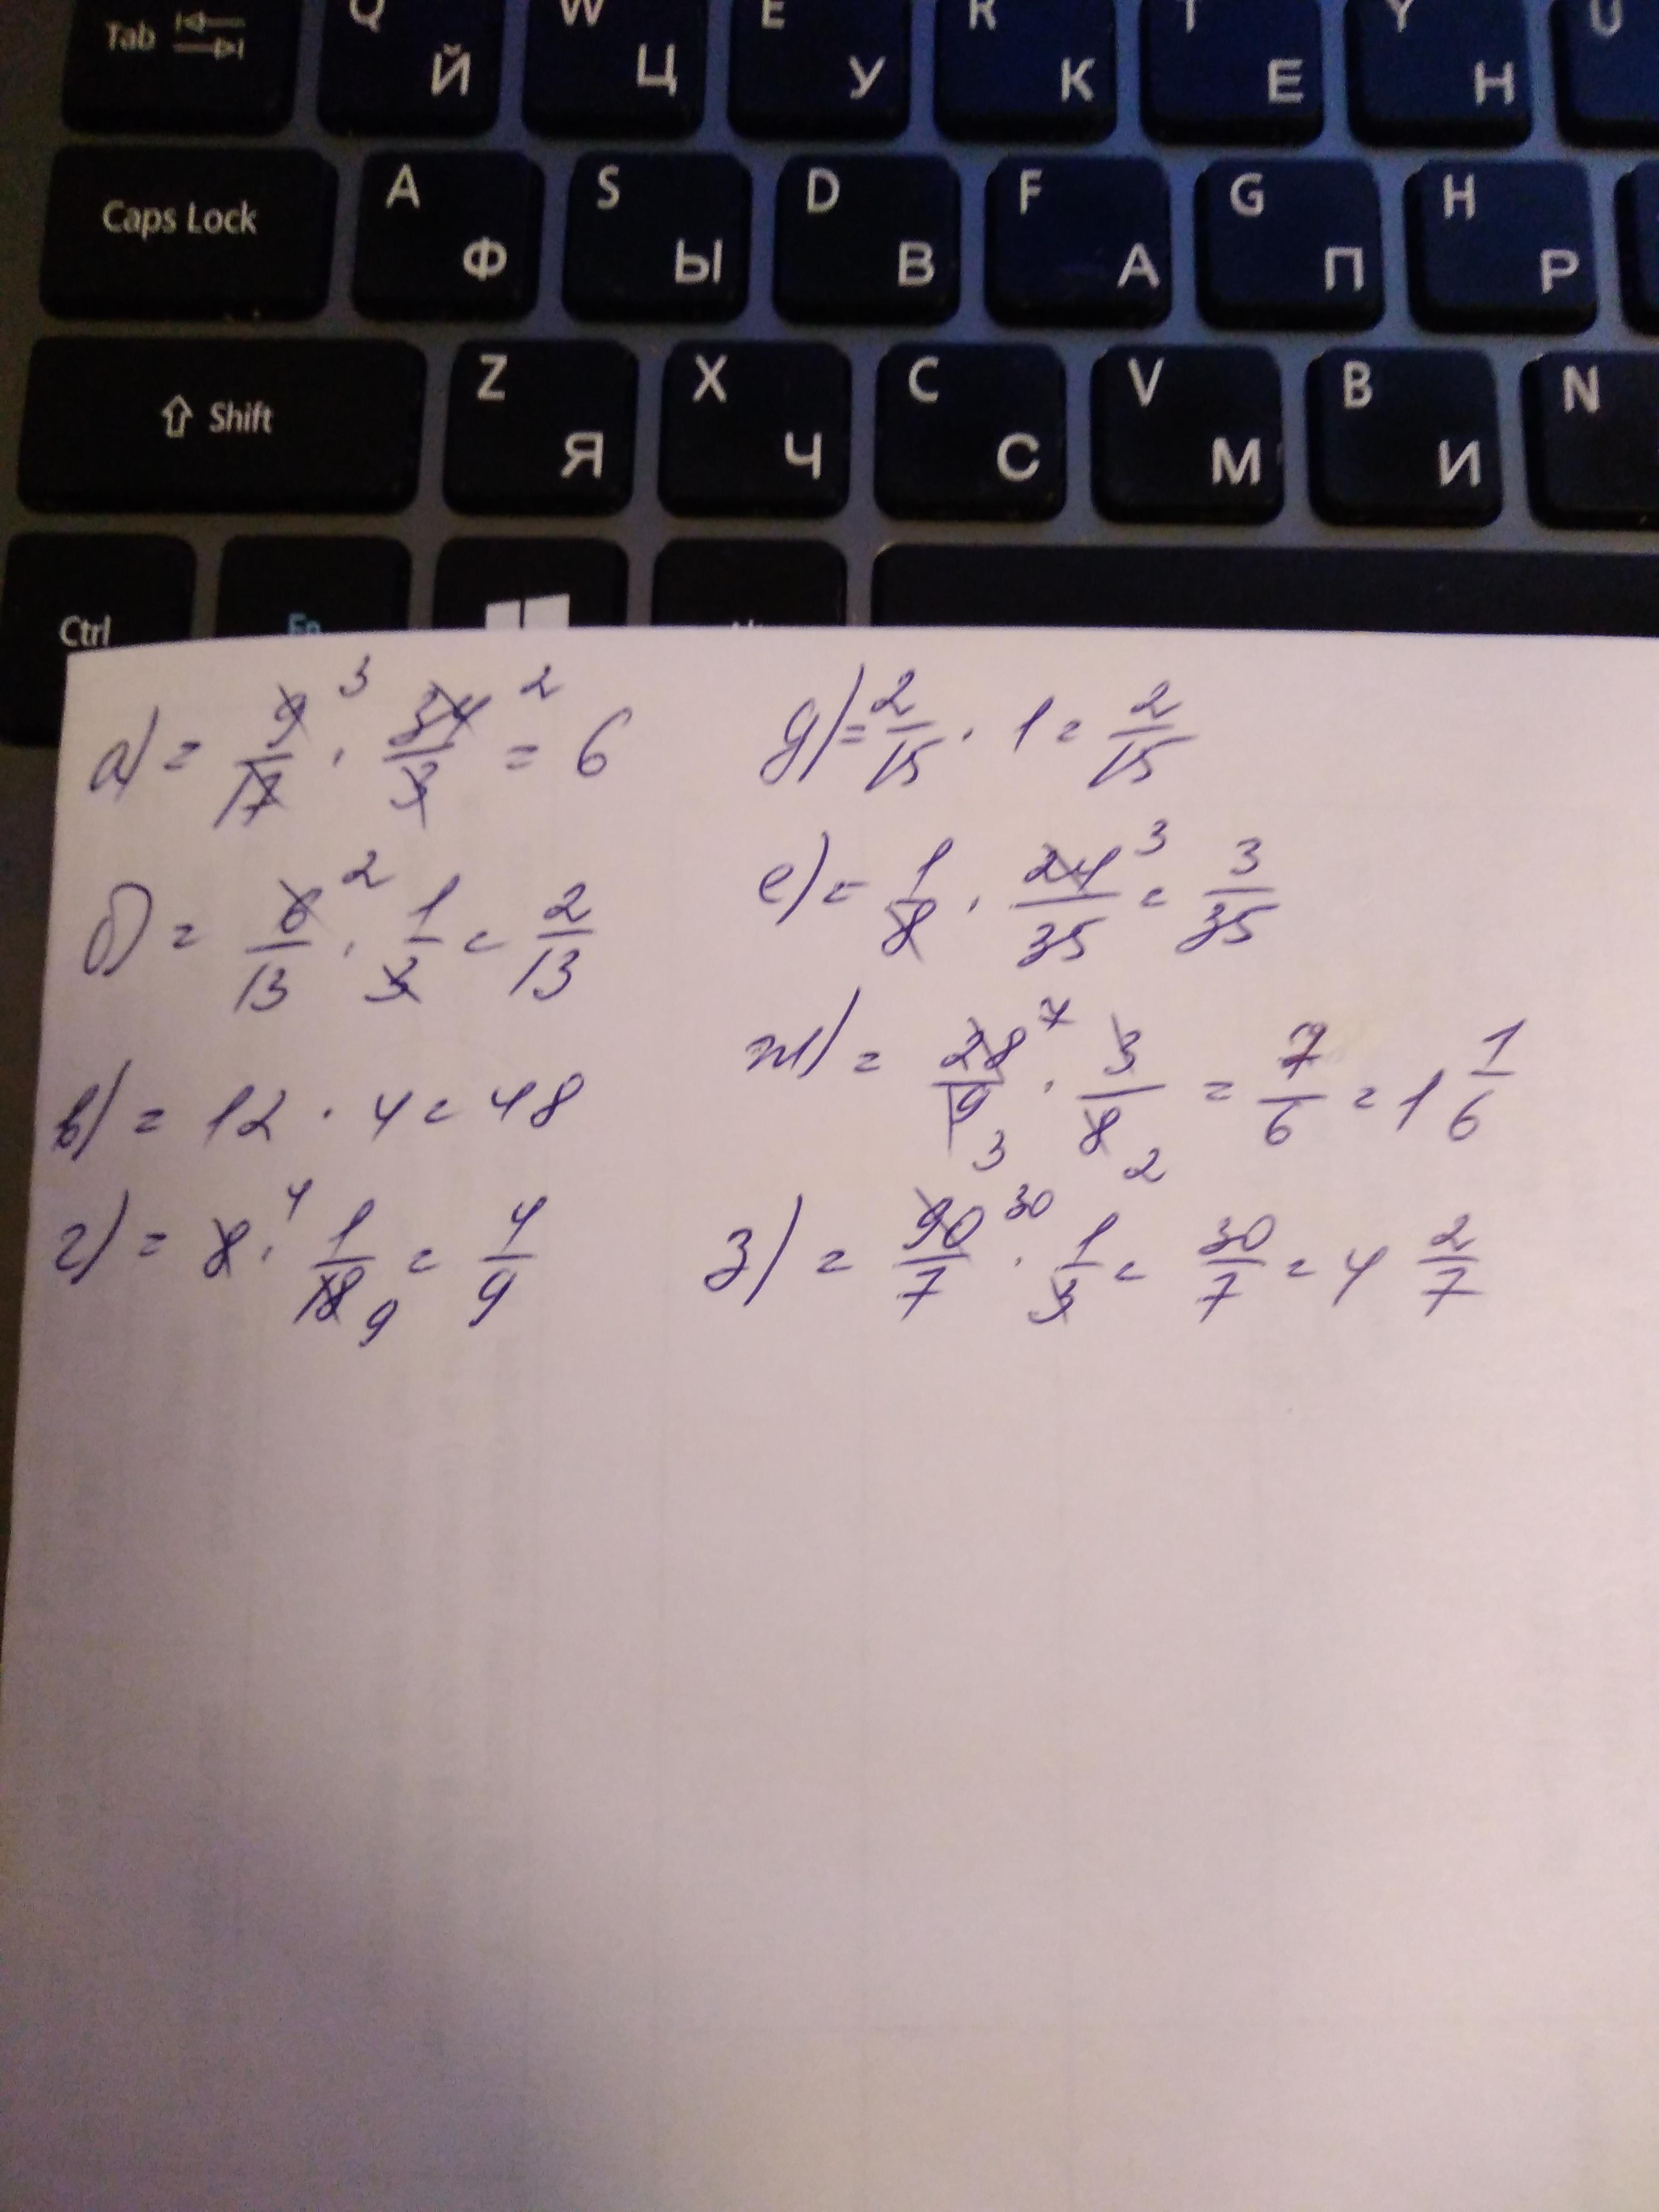 Tab Q Й W Ц E У R К T Е Y Н U
Caps Lock A Ф S Ы D В F А G П H Р
Shift Z Я X Ч C С V М B И N
Ctrl Fn
а) = 9/17 3 · 34/3 2 = 6
б) = 6/13 2 · 1/3 = 2/13
в) = 12 · 4 = 48
г) = 8 4 · 1/18 9 = 4/9
д) = 2/15 · 1 = 2/15
е) = 1/8 · 24/35 3 = 3/35
ж) = 28/9 7 3 · 3/8 2 = 7/6 = 1 1/6
з) = 90/7 30 · 1/3 = 30/7 = 4 2/7